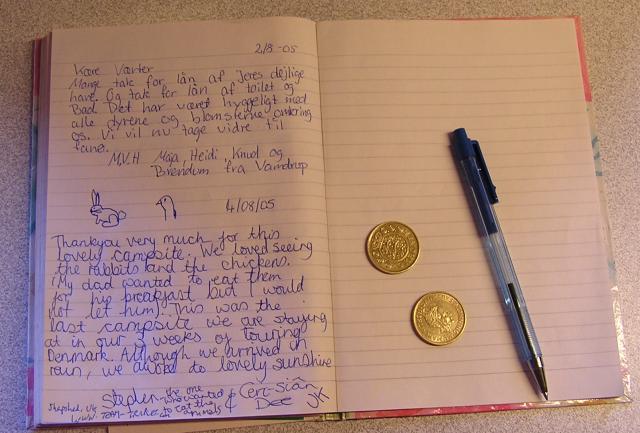 2/8-05
Kære Værter
Mange tak for lån af Jeres dejlige
have. Og tak for lån af toilet og
Bad. Det har været hyggeligt med
alle dyrene og blomsterne omkring
os. Vi vil nu tage vidre til
fanø.
M.V.H Maja, Heidi, Knud og
Brendum fra Vamdrup
4/08/05
Thankyou very much for this
lovely campsite. We loved seeing
the rabbits and the chickens.
(My dad wanted to eat them
for his breakfast but I would
not let him). This was the
last campsite we are staying
at in our 3 weeks of touring
Denmark. Although we arrived in
rain, we awoke to lovely sunshine
Stephen the one who wanted to eat the animals & Ceri-Siân
Dee UK
Shepshed, UK